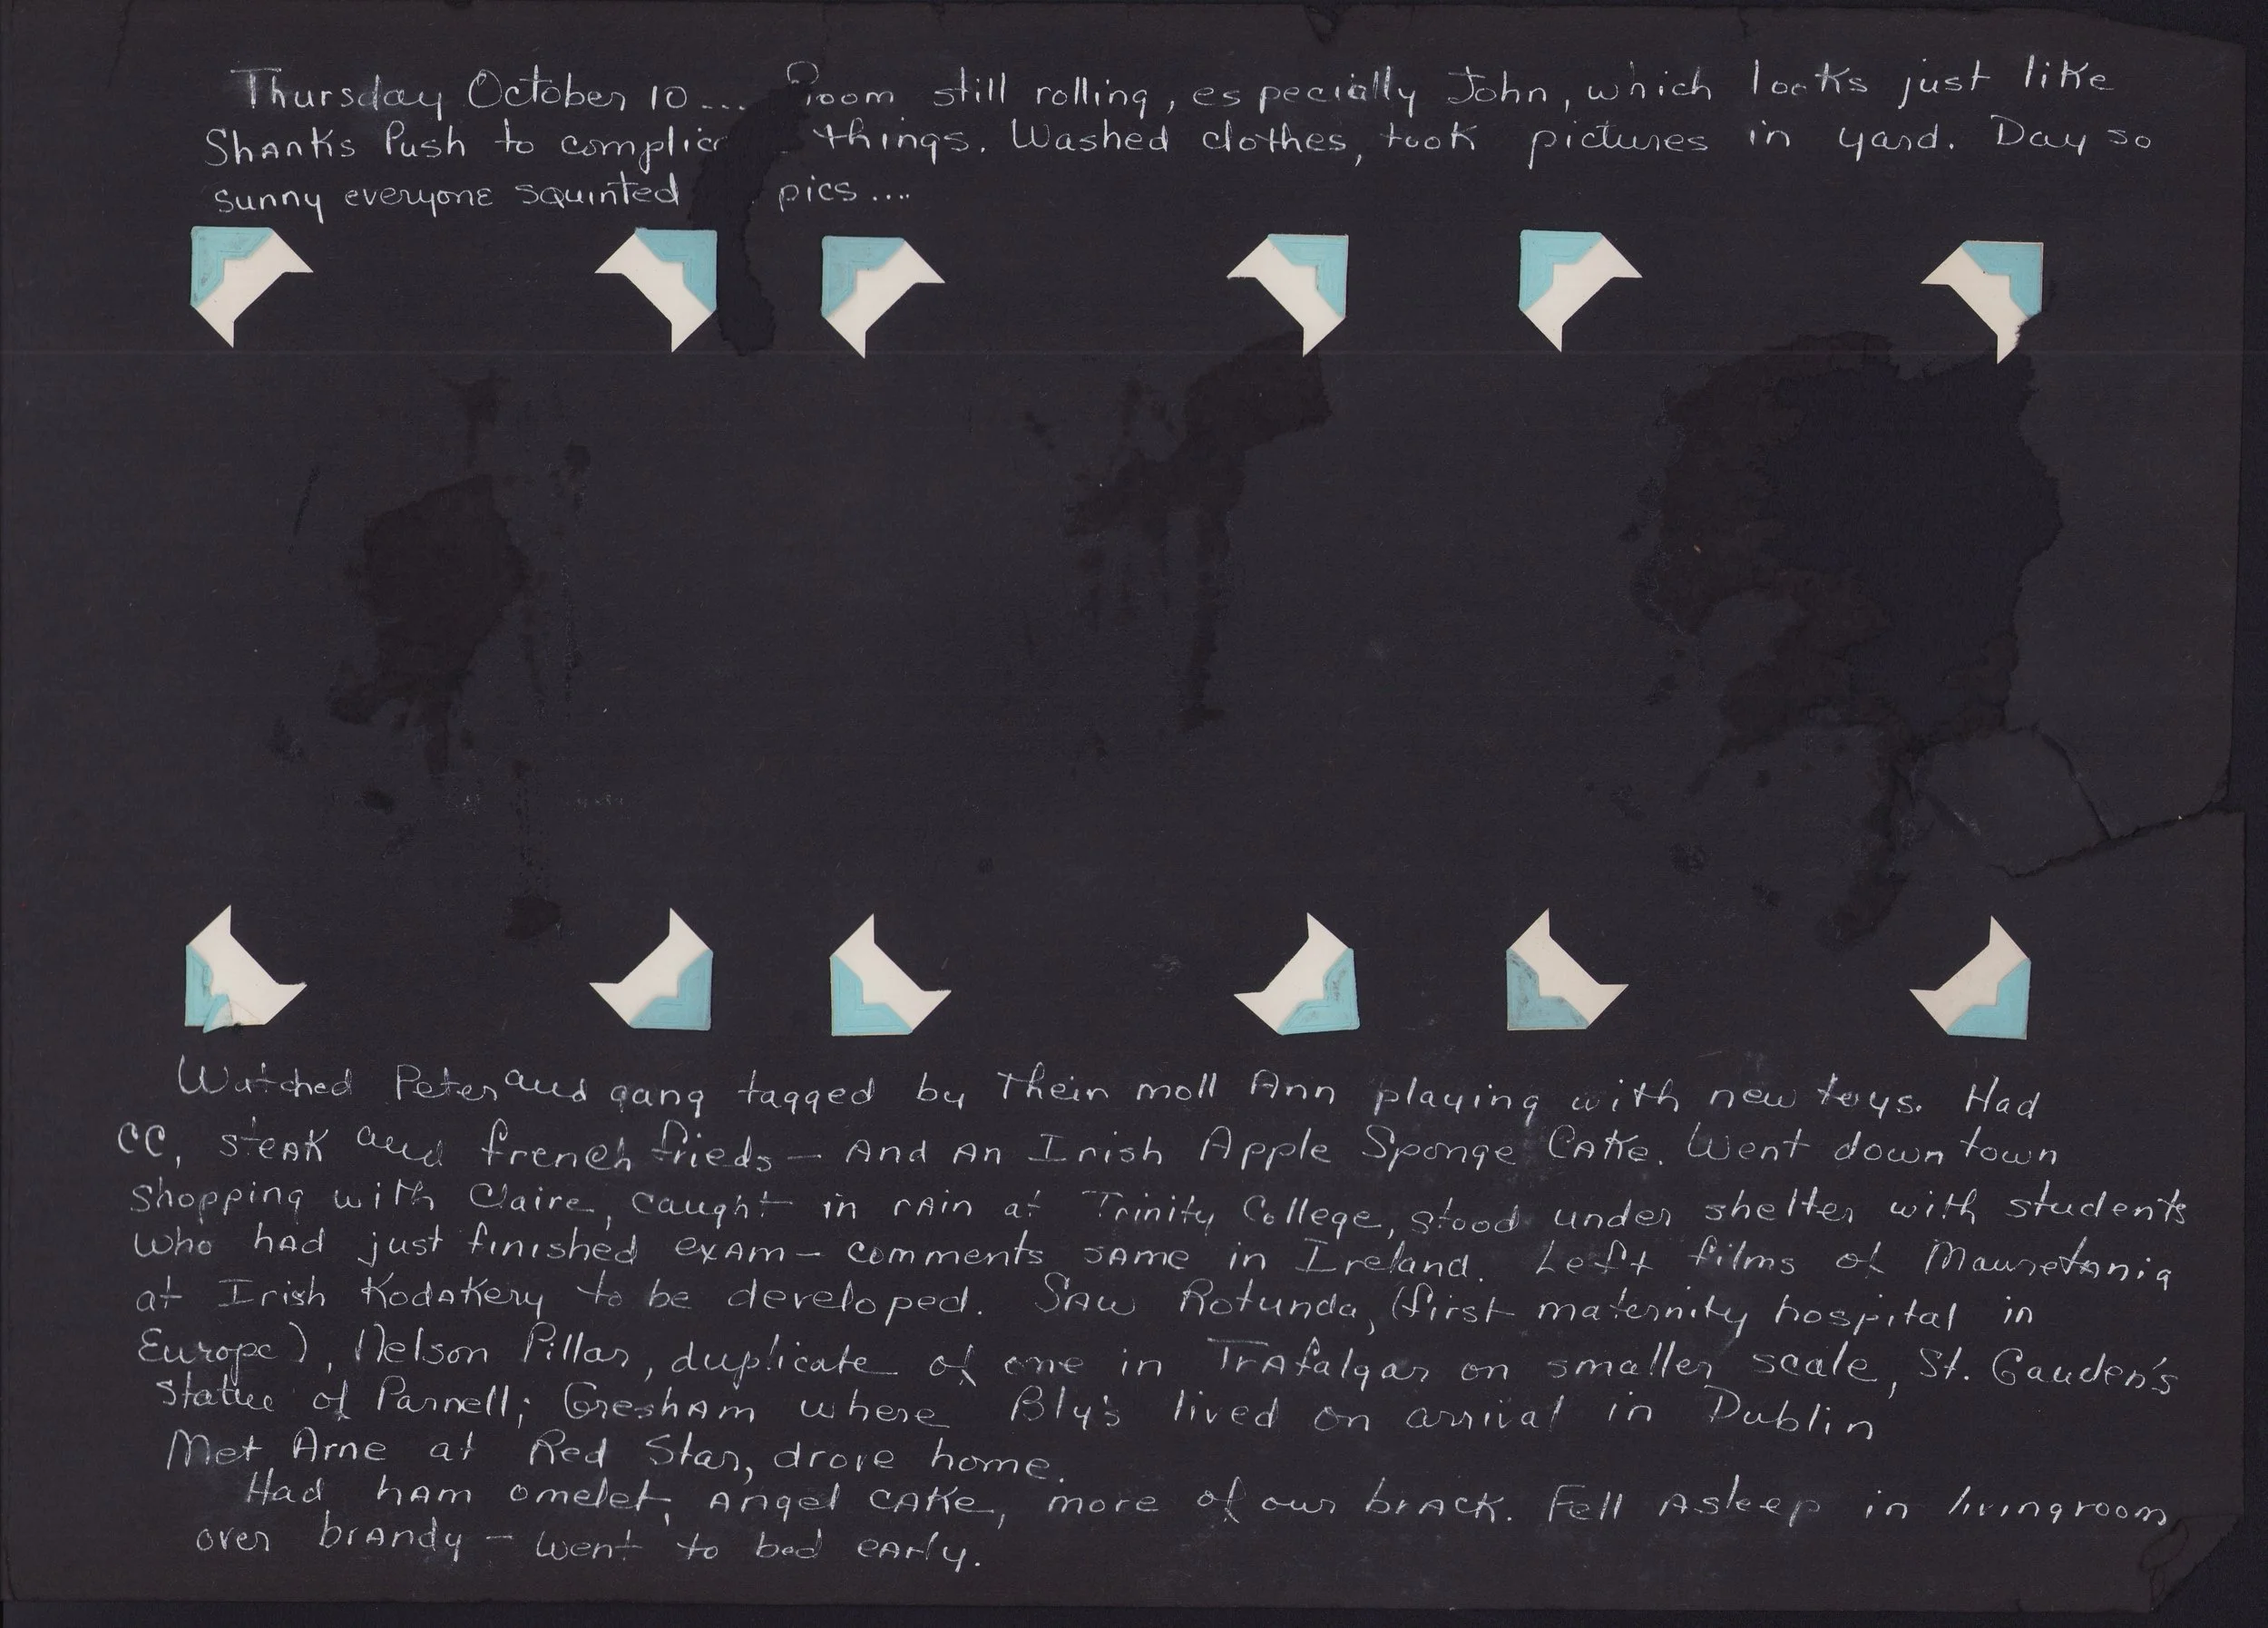 Thursday October 10.... Room still rolling, especially John, which looks just like
Shanks Push to complic things. Washed clothes, took pictures in yard. Day so
sunny everyone squinted pics....
Watched Peter and gang tagged by their moll Ann playing with new toys. Had
CC, steak and french frieds — And An Irish Apple Sponge Cake. Went downtown
shopping with Claire, caught in rain at Trinity College, stood under shelter with students
who had just finished exam — comments same in Ireland. Left films of Mauretania
at Irish Kodakery to be developed. Saw Rotunda, (first maternity hospital in
Europe), Nelson Pillar, duplicate of one in Trafalgar on smaller scale, St. Gauden's
Statue of Parnell; Gresham where Bly's lived on arrival in Dublin
Met Arne at Red Star, drove home.
Had ham omelet, Angel Cake, more of our brack. Fell Asleep in livingroom
over brandy — went to bed early.